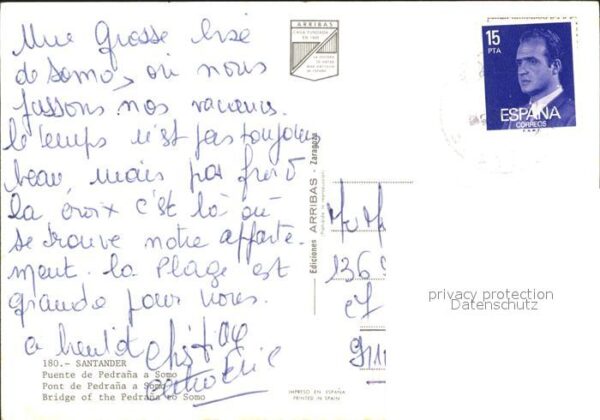 Une grosse bise
de Somo, où nous
passons nos vacances.
le temps n'est pas toujours
beau, mais pas froid
la croix c'est là où
se trouve notre apparte-
ment. la Plage est
grande pour nous.
a bientôt
180.- SANTANDER
Puente de Pedraña a Somo
Pont de Pedraña a Somo
Bridge of the Pedraña to Somo
ARRIBAS
CASA FUNDADA
Ediciones ARRIBAS - Zaragoza
IMPRESO EN ESPAÑA
PRINTED IN SPAIN
15
PTA
ESPAÑA
CORREOS
136
et
privacy protection
Datenschutz